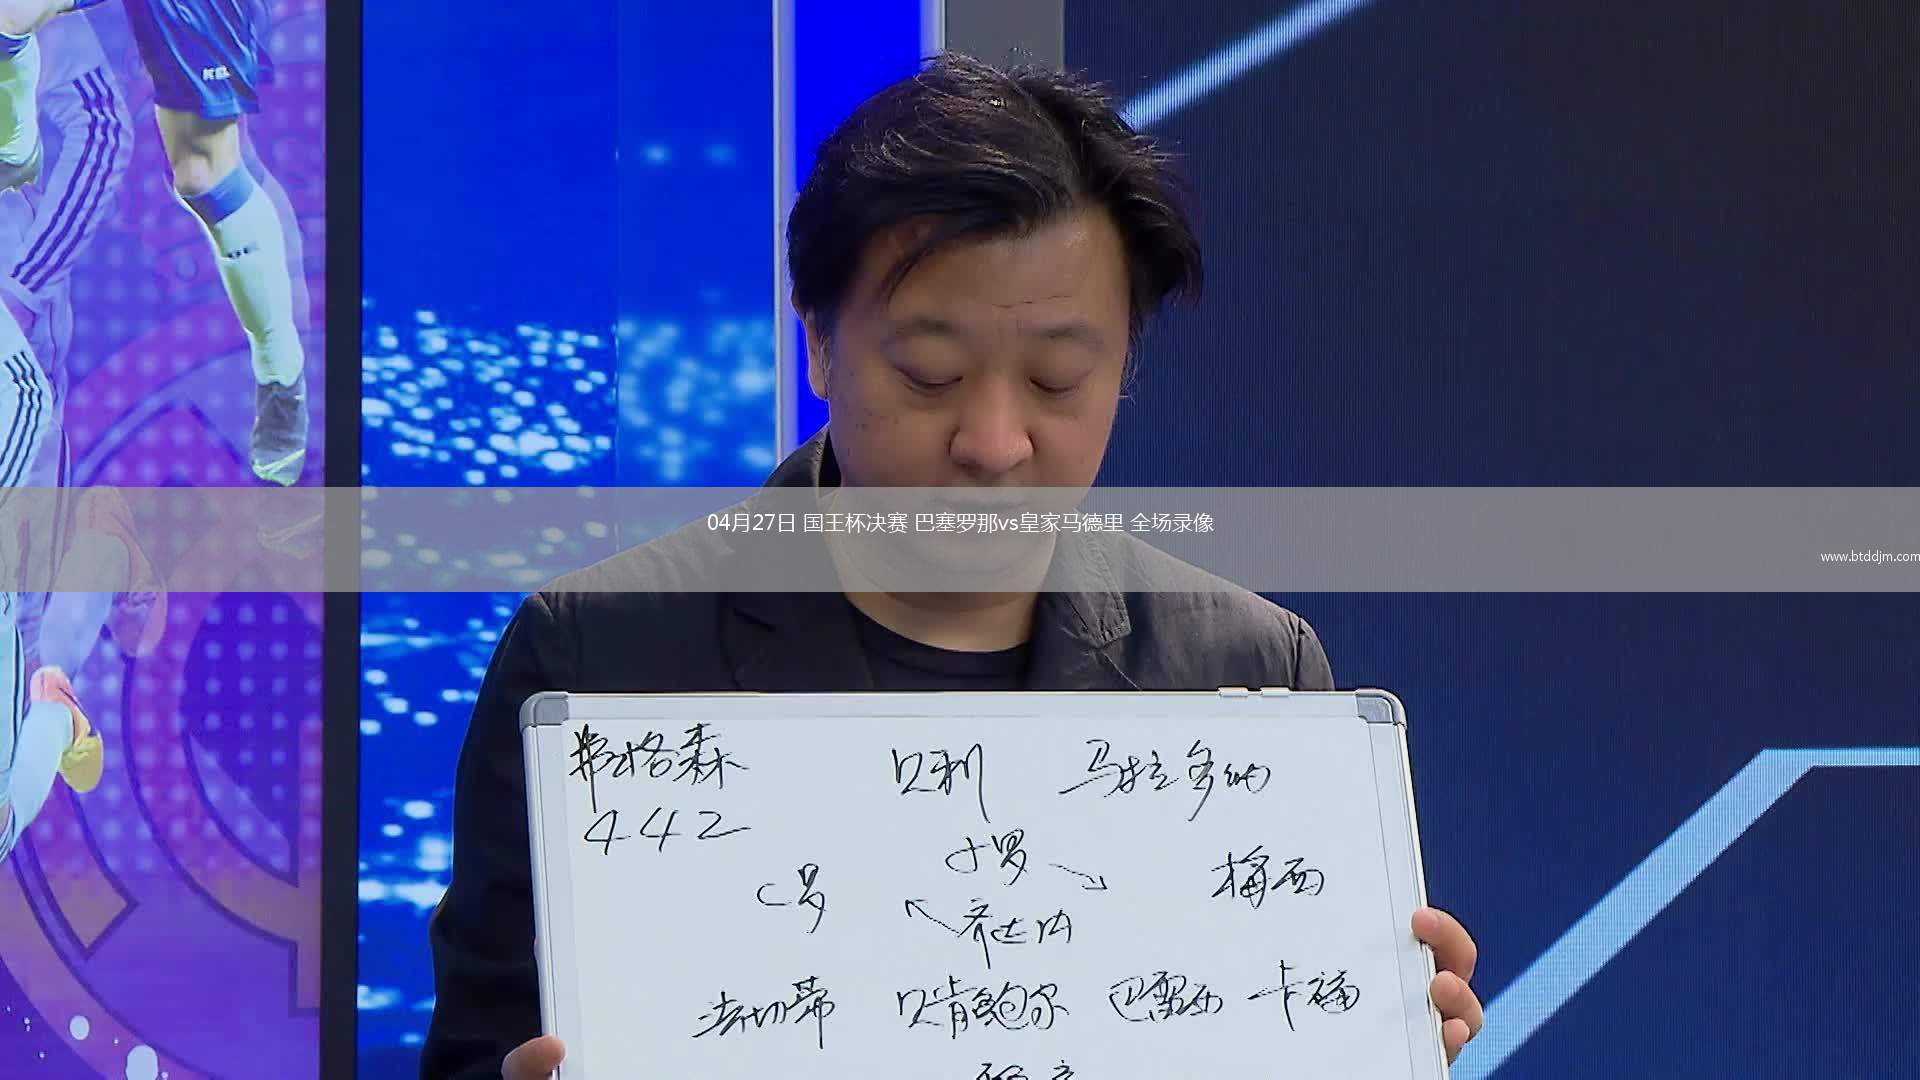 04月27日 国王杯决赛 巴塞罗那vs皇家马德里 全场录像
www.btddjm.com
弗格森 贝利 马拉多纳
442
小罗
C罗 梅西
齐达内
法切蒂 贝肯鲍尔 巴雷西 卡福